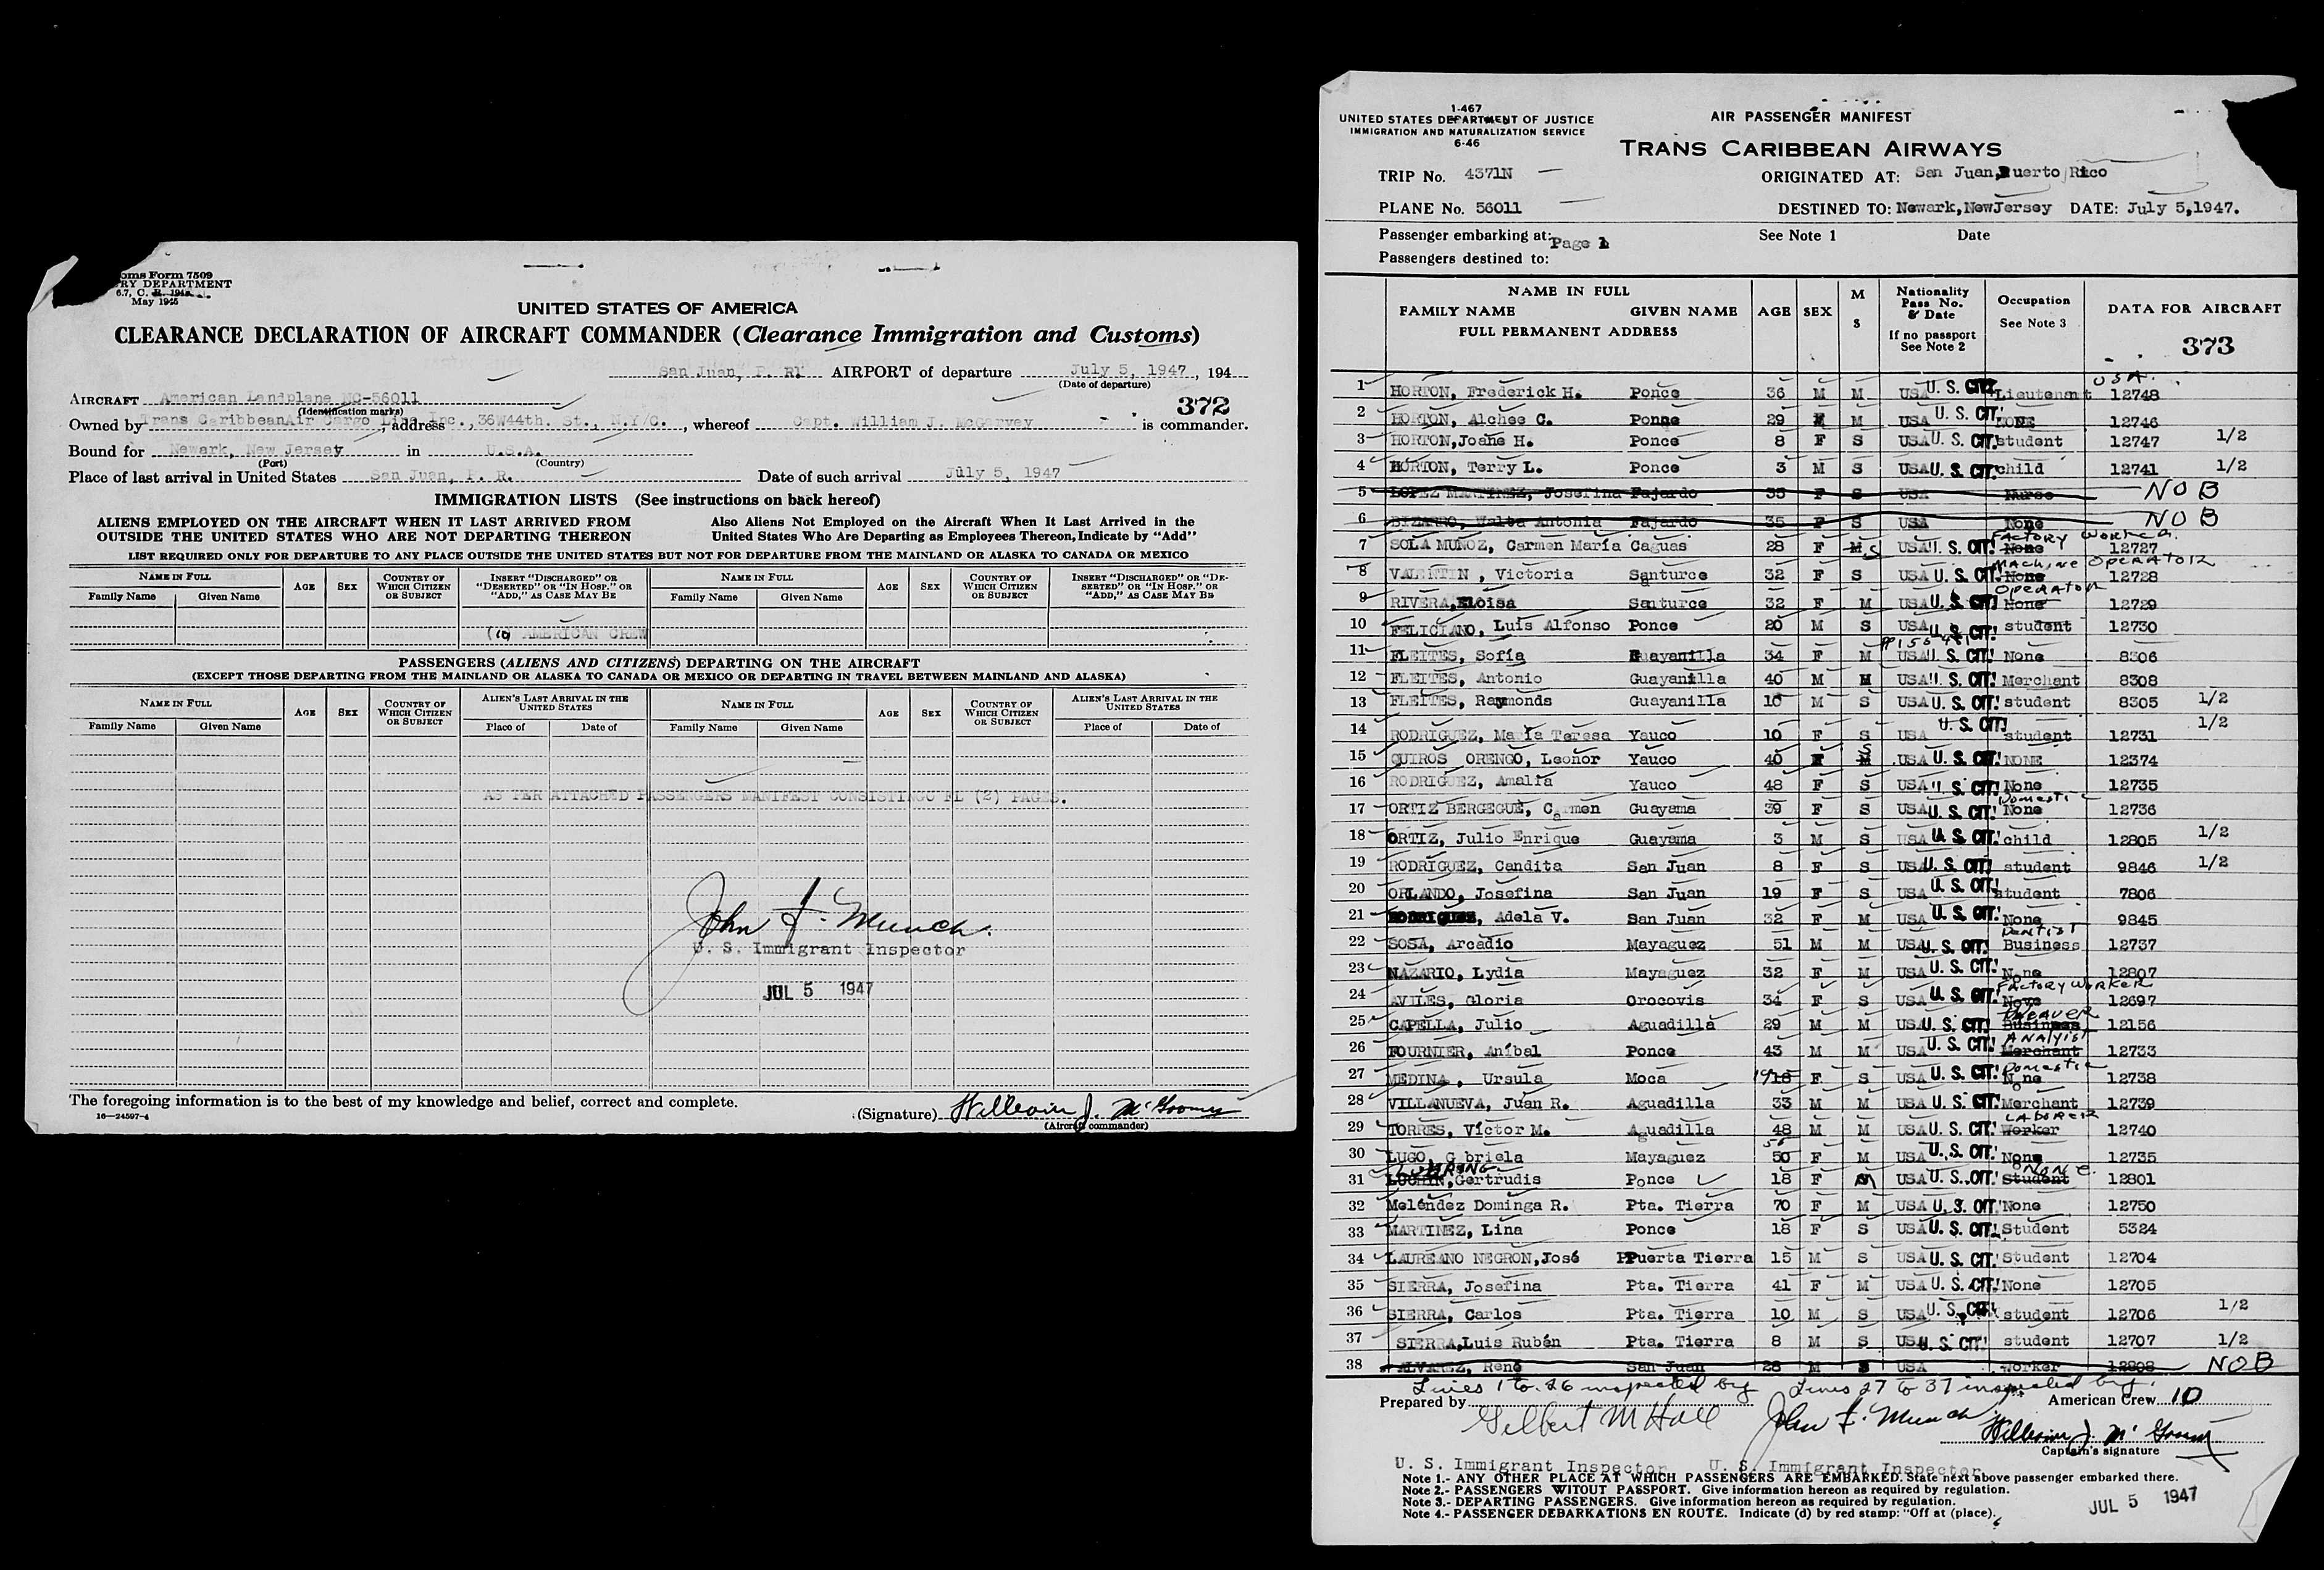 oms Form 7509
RY DEPARTMENT
May 1945
UNITED STATES OF AMERICA
CLEARANCE DECLARATION OF AIRCRAFT COMMANDER (Clearance Immigration and Customs)
San Juan, P. R. AIRPORT of departure July 5, 1947, 194
(Date of departure)
AIRCRAFT American Landplane NC-56011
(Identification marks)
372
Owned by Trans CaribbeanAir Cargo Line Inc., address 36W44th. St., N.Y/C., whereof Capt. William J. McGarvey is commander.
Bound for Newark, New Jersey in U.S.A.
(Port) (Country)
Place of last arrival in United States San Juan, P. R. Date of such arrival July 5, 1947
IMMIGRATION LISTS (See instructions on back hereof)
ALIENS EMPLOYED ON THE AIRCRAFT WHEN IT LAST ARRIVED FROM OUTSIDE THE UNITED STATES WHO ARE NOT DEPARTING THEREON
Also Aliens Not Employed on the Aircraft When It Last Arrived in the United States Who Are Departing as Employees Thereon, Indicate by "Add"
LIST REQUIRED ONLY FOR DEPARTURE TO ANY PLACE OUTSIDE THE UNITED STATES BUT NOT FOR DEPARTURE FROM THE MAINLAND OR ALASKA TO CANADA OR MEXICO
NAME IN FULL AGE SEX COUNTRY OF WHICH CITIZEN OR SUBJECT INSERT "DISCHARGED" OR "DESERTED" OR "IN HOSP." OR "ADD," AS CASE MAY BE NAME IN FULL AGE SEX COUNTRY OF WHICH CITIZEN OR SUBJECT INSERT "DISCHARGED" OR "DE-SERTED" OR "IN HOSP." OR "ADD," AS CASE MAY BE
Family Name Given Name Family Name Given Name
(10) AMERICAN CREW
PASSENGERS (ALIENS AND CITIZENS) DEPARTING ON THE AIRCRAFT
(EXCEPT THOSE DEPARTING FROM THE MAINLAND OR ALASKA TO CANADA OR MEXICO OR DEPARTING IN TRAVEL BETWEEN MAINLAND AND ALASKA)
NAME IN FULL AGE SEX COUNTRY OF WHICH CITIZEN OR SUBJECT ALIEN'S LAST ARRIVAL IN THE UNITED STATES NAME IN FULL AGE SEX COUNTRY OF WHICH CITIZEN OR SUBJECT ALIEN'S LAST ARRIVAL IN THE UNITED STATES
Family Name Given Name Place of Date of Family Name Given Name Place of Date of
AS PER ATTACHED PASSENGERS MANIFEST CONSISTING (2) PAGES.
John F. Munch.
U. S. Immigrant Inspector
JUL 5 1947
The foregoing information is to the best of my knowledge and belief, correct and complete.
16—24597-4
(Signature) William J. McGarvey
(Aircraft commander)
1-467
UNITED STATES DEPARTMENT OF JUSTICE
IMMIGRATION AND NATURALIZATION SERVICE
6-46
AIR PASSENGER MANIFEST
TRANS CARIBBEAN AIRWAYS
TRIP No. 4371N ORIGINATED AT: San Juan,Puerto Rico
PLANE No. 56011 DESTINED TO: Newark,NewJersey DATE: July 5,1947.
Passenger embarking at: Page 1 See Note 1 Date
Passengers destined to:
NAME IN FULL
FAMILY NAME GIVEN NAME
FULL PERMANENT ADDRESS
AGE SEX M S Nationality Pass No. & Date If no passport See Note 2 Occupation See Note 3 DATA FOR AIRCRAFT
373
USA.
1 HORTON, Frederick H. Ponce 36 M M USA U. S. CIT. Lieutenant 12748
2 HORTON, Alchee C. Ponce 29 F M USA U. S. CIT. NONE 12746
3 HORTON,Joane H. Ponce 8 F S USA U. S. CIT. student 12747 1/2
4 HORTON, Terry L. Ponce 3 M S USA U. S. CIT. child 12741 1/2
5 LOPEZ MARTINEZ, Josefina Fajardo 35 F S USA Nurse NOB
6 Antonia Fajardo 35 F S USA None NOB
7 SOLA MUÑOZ, Carmen María Caguas 28 F M S USA U. S. CIT! None FACTORY WORKER 12727
8 VALENTIN , Victoria Santurce 32 F S USA U. S. CIT! None MACHINE OPERATOR 12728
9 RIVERA,Eloisa Santurce 32 F M USA U. S. CIT! None OPERATOR 12729
10 FELICIANO, Luis Alfonso Ponce 20 M S USA U. S. CIT! student 12730
11 FLEITES, Sofía Guayanilla 34 F M USA U. S. CIT! None 8306
12 FLEITES, Antonio Guayanilla 40 M M USA U. S. CIT! Merchant 8308
13 FLEITES, Raymonds Guayanilla 10 M S USA U. S. CIT! student 8305 1/2
14 RODRIGUEZ, María Teresa Yauco 10 F S USA U. S. CIT! student 12731 1/2
15 QUIROS ORENGO, Leonor Yauco 40 F M S USA U. S. CIT! NONE 12374
16 RODRIGUEZ, Amalia Yauco 48 F S USA U. S. CIT! None 12735
17 ORTIZ BERGEGUE, Carmen Guayama 39 F S USA U. S. CIT! None Domestic 12736
18 ORTIZ, Julio Enrique Guayama 3 M S USA U. S. CIT! child 12805 1/2
19 RODRIGUEZ, Candita San Juan 8 F S USA U. S. CIT! student 9846 1/2
20 ORLANDO, Josefina San Juan 19 F S USA U. S. CIT! student 7806
21 RODRIGUEZ, Adela V. San Juan 32 F M USA U. S. CIT! None 9845
22 SOSA, Arcadio Mayaguez 51 M M USA U. S. CIT! DENTIST Business 12737
23 NAZARIO, Lydia Mayaguez 32 F M USA U. S. CIT! None 12807
24 AVILES, Gloria Orocovis 34 F S USA U. S. CIT! FACTORY WORKER None 12697
25 CAPELLA, Julio Aguadilla 29 M M USA U. S. CIT! WEAVER Business 12156
26 FOURNIER, Aníbal Ponce 43 M M USA U. S. CIT! ANALYIST Merchant 12733
27 MEDINA , Ursula Moca 19 18 F S USA U. S. CIT! Domestic None 12738
28 VILLANUEVA, Juan R. Aguadilla 33 M M USA U. S. CIT! Merchant 12739
29 TORRES, Víctor M. Aguadilla 48 M M USA U. S. CIT! LABORER Worker 12740
30 LUGO, Gabriela Mayaguez 50 F M USA U. S. CIT! None 12735
31 Gertrudis Ponce 18 F M USA U. S. CIT! student NONE. 12801
32 Meléndez Dominga R. Pta. Tierra 70 F M USA U. S. CIT! None 12750
33 MARTINEZ, Lina Ponce 18 F S USA U. S. CIT! Student 5324
34 LAUREANO NEGRON,José Puerta Tierra 15 M S USA U. S. CIT! Student 12704
35 SIERRA, Josefina Pta. Tierra 41 F M USA U. S. CIT! None 12705
36 SIERRA, Carlos Pta. Tierra 10 M S USA U. S. CIT! student 12706 1/2
37 SIERRA,Luis Rubén Pta. Tierra 8 M S USA U. S. CIT! student 12707 1/2
38 ALVAREZ, René San Juan 28 M S USA Worker 12808 NOB
Lines 1 to 26 inspected by Lines 27 to 37 inspected by.
Prepared by Gilbert M Hall John F. Munch American Crew 10
William J. McGarvey
Captain's signature
U. S. Immigrant Inspector U. S. Immigrant Inspector
Note 1.- ANY OTHER PLACE AT WHICH PASSENGERS ARE EMBARKED. State next above passenger embarked there.
Note 2.- PASSENGERS WITOUT PASSPORT. Give information hereon as required by regulation.
Note 3.- DEPARTING PASSENGERS. Give information hereon as required by regulation.
Note 4.- PASSENGER DEBARKATIONS EN ROUTE. Indicate (d) by red stamp: "Off at (place).
JUL 5 1947